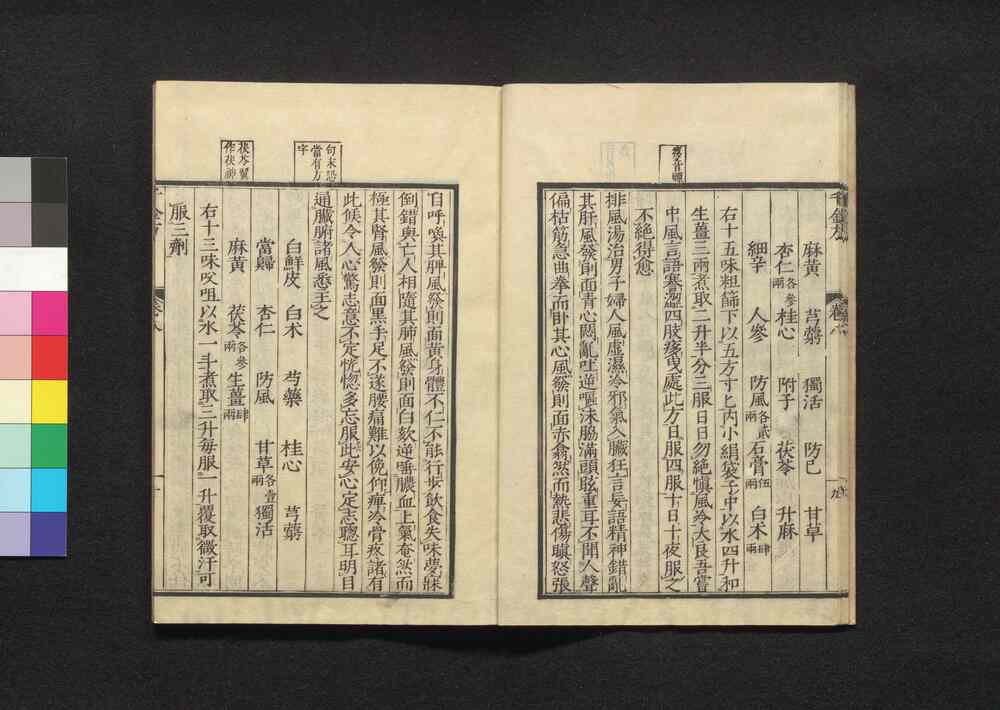 麻黃 芎藭 獨活 防己 甘草
杏仁各參兩 桂心 附子 茯苓 升麻
細辛 人參 防風各貳兩 石膏伍兩 白朮肆兩
右十五味粗篩下以五方寸匕內小絹袋子中以水四升和
生薑三兩煮取二升半分三服日日勿絶慎風冷大良吾嘗
中風言語蹇澀四肢痑曳處此方日服四服十日十夜服之
不絶得愈
排風湯治男子婦人風虛濕冷邪氣入臟狂言妄語精神錯亂
其肝風發則面青心悶亂吐逆嘔沫脇滿頭眩重耳不聞人聲
偏枯筋急曲拳而臥其心風發則面赤翕然而熱悲傷瞋怒張
目呼喚其脾風發則面黃身體不仁不能行步飲食失味夢寐
倒錯與亡人相隨其肺風發則面白欬逆唾膿血上氣奄然而
極其腎風發則面黑手足不遂腰痛難以俛仰痺冷骨疼諸有
此候令人心驚志意不定恍惚多忘服此安心定志聰耳明目
通臟腑諸風悉主之
白鮮皮 白朮 芍藥 桂心 芎藭
當歸 杏仁 防風 甘草各壹兩 獨活
麻黃 茯苓各參兩 生薑肆兩
右十三味㕮咀以水一斗煮取三升每服一升覆取微汗可
服三劑
句末恐
當有方
字
茯苓翼
作茯神
卷八
九